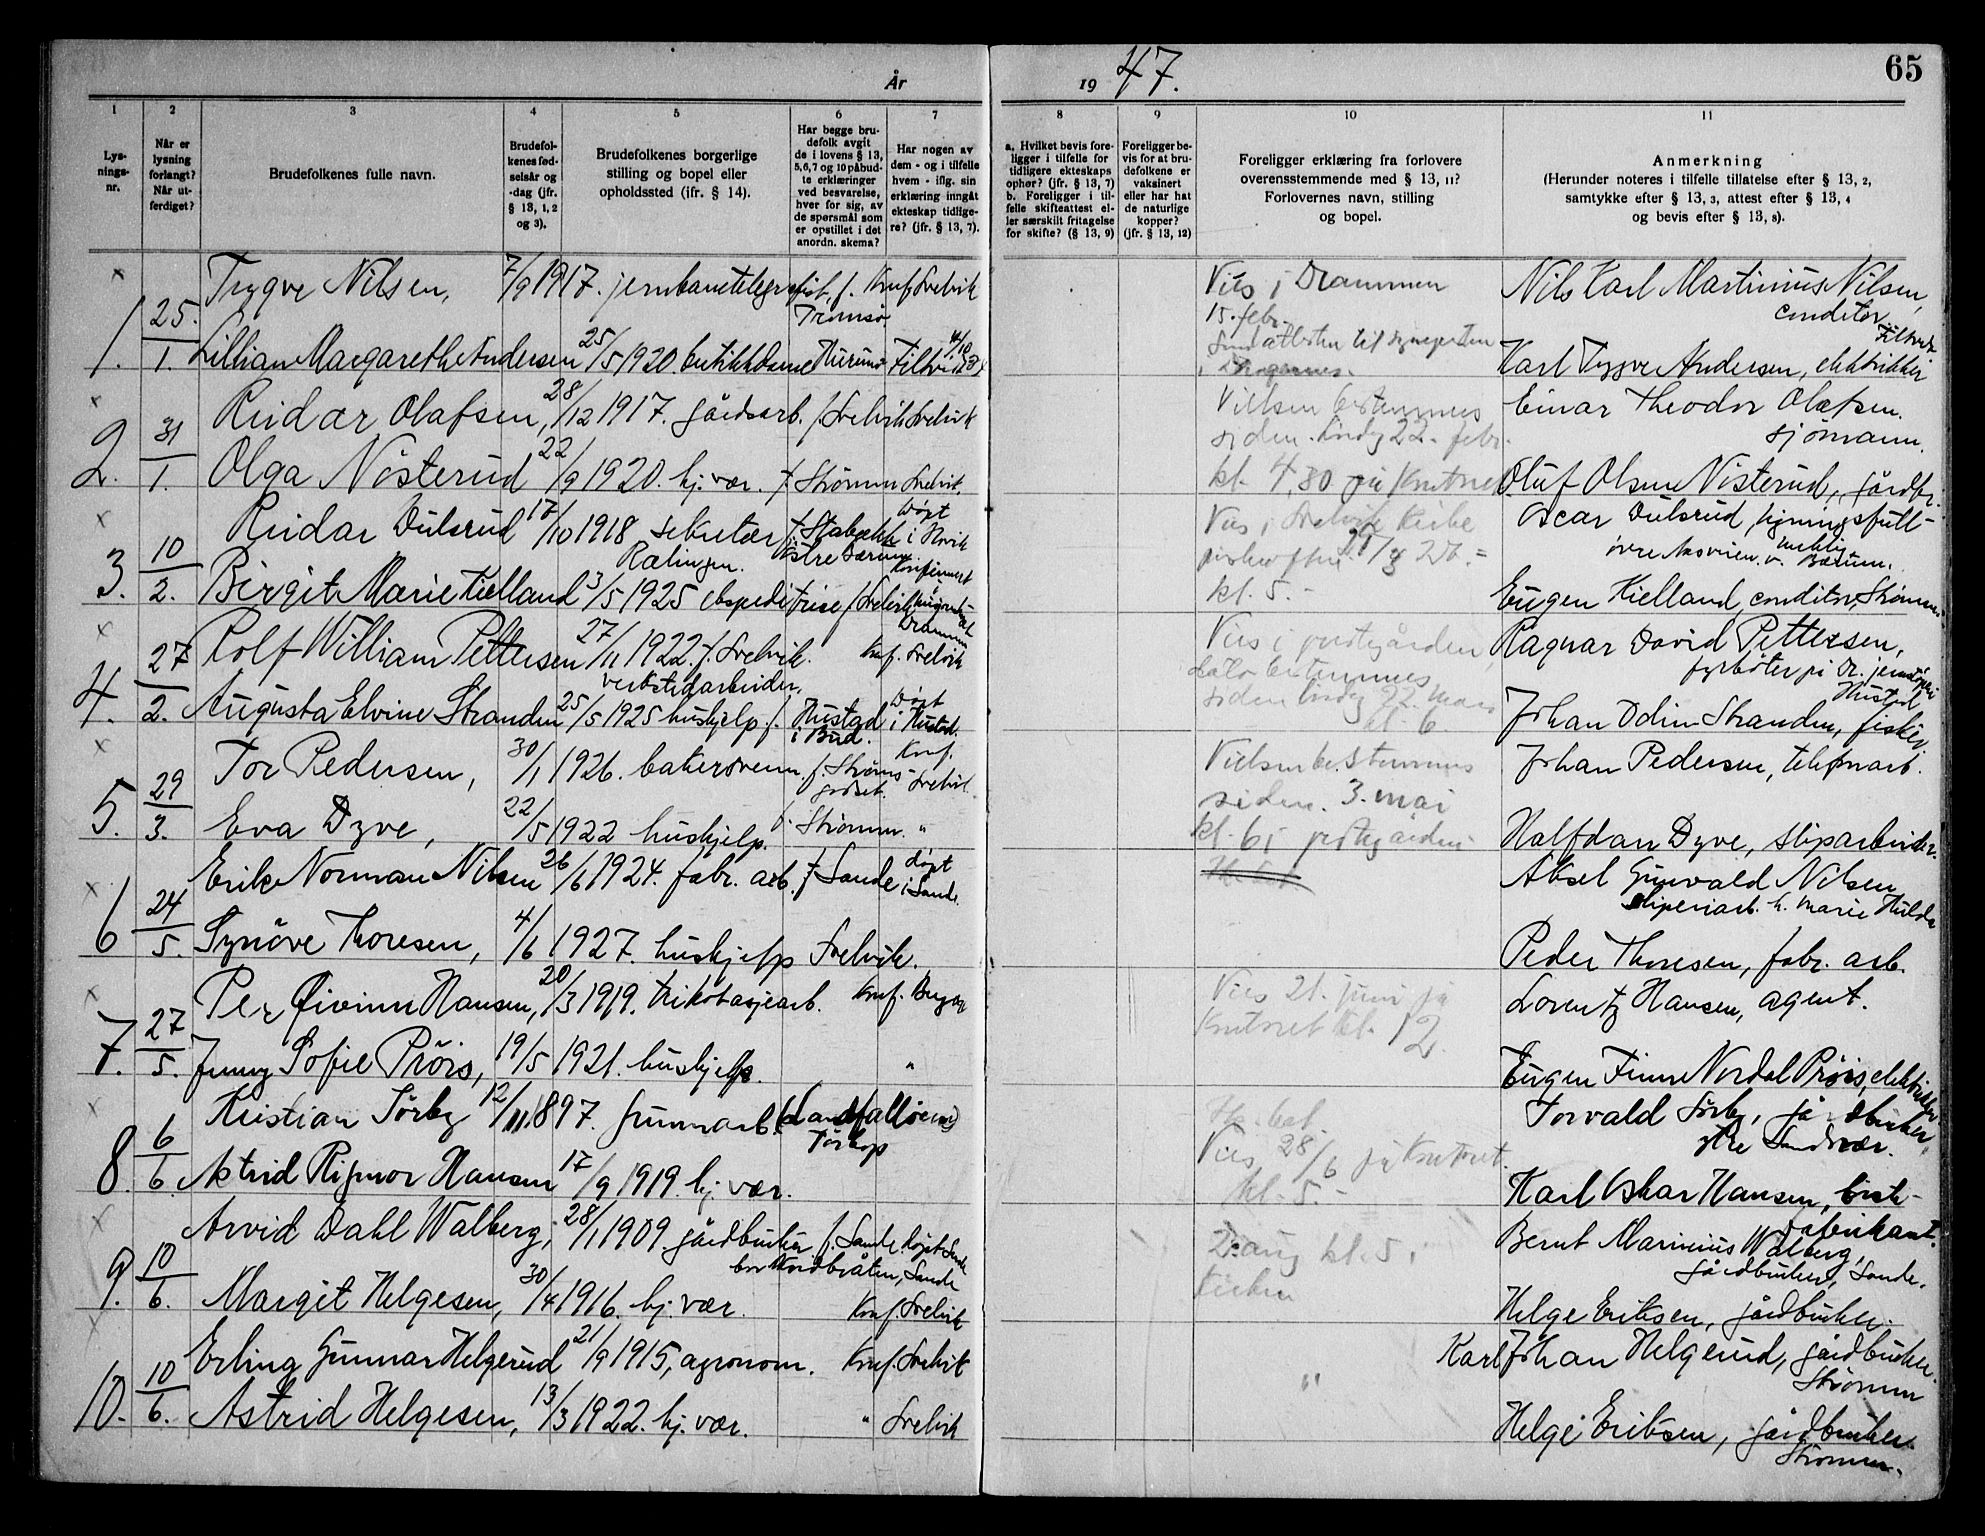 År 1947. 65
1 2 3 4 5 6 7 8 9 10 11
Lysnings-nr.
Når er lysning forlangt? Når utferdiget?
Brudefolkenes fulle navn.
Brudefolkenes fødselsår og -dag (jfr. § 13, 1, 2 og 3).
Brudefolkenes borgerlige stilling og bopel eller opholdssted (ifr. § 14).
Har begge brudefolk avgit de i lovens § 13, 5,6,7 og 10 påbudte erklæringer ved besvarelse, hver for sig, av de spørsmål som er opstillet i det anordn. skema?
Har nogen av dem - og i tilfelle hvem - iflg. sin erklæring inngåt ekteskap tidligere? (jfr. § 13, 7).
a. Hvilket bevis foreligger i tilfelle for tidligere ekteskaps ophør? (jfr. § 13, 7) b. Foreligger i tilfelle skifteattest eller særskilt fritagelse for skifte? (§ 13, 9)
Foreligger bevis for at brudefolkene er vaksinert eller har hat de naturlige kopper? (jfr. § 13, 12)
Foreligger erklæring fra forlovere overensstemmende med § 13, 11? Forlovernes navn, stilling og bopel.
Anmerkning (Herunder noteres i tilfelle tillatelse efter § 13, 2, samtykke efter § 13, 3, attest efter § 13, 4 og bevis efter § 13, 8).
1. 25/1. Trygve Nilsen, 7/9 1917. jernbanetelegrafist, f. Tromsø. Konf. Svelvik
Vies i Drammen 15. febr.
Nils Karl Martinius Nilsen, conditor
Lillian Margarethe Andersen 25/5 1920. butikkdame Hurum Filtvet
Karl Trygve Andersen, elektriker Filtvet
2. 31/1. Reidar Olafsen, 28/12 1917. gårdsarb. f. Svelvik Svelvik
Vielsen bestemmes siden. lördag 22. febr. kl. 4,30 på Kontoret
Einar Theodor Olafsen. sjömann.
Olga Nösterud 22/9 1920. hj. vær. f. Strömm Svelvik.
Oluf Olsen Nösterud, gårdbr.
3. 10/2. Reidar Dulsrud 17/10 1918 sekretær f. Stabekk Östre Bærum. Rælingen. döpt i Hövik
Vies i Svelvik Kirke kl. 5.-
Oscar Dulsrud, ligningsfull-mektig Bærum.
Birgit Marie Kielland 3/5 1925 ekspeditrise f. Svelvik Konfirmert Drammen
Eugen Kielland, conditor, Strömm
4. 27/2. Rolf William Pettersen 27/11 1922. f. Svelvik. verkstedarbeider, Konf. Svelvik
Vies i prestegården, dato bestemmes siden lördag 22. mars kl. 6.
Ragnar David Pettersen, fyrböter på Dr. jernstöperi
Augusta Elvine Stranden 25/5 1925 hushjelp. f. Hustad i Bud. Döpt i Hustad.
Johan Odin Stranden, fisker. Hustad
5. 29/3. Tor Pedersen, 30/1 1926. bakersvenn. f. Strömsgodset. Konf. Svelvik.
Vielsen bestemmes siden. 3. mai kl. 6 i prestegården
Johan Pedersen, telefonarb.
Eva Dyve, 22/5 1922 hushjelp. f. Strömm. "
Halfdan Dyve, sliparbeider.
6. 24/5. Erik Norman Nilsen 26/6 1924. fabr. arb. f. Sande döpt i Sande.
Aksel Gunvald Nilsen sliperiarb. h. Marie Hulda
Synöve Thoresen, 4/6 1927. hushjelp Svelvik.
Peder Thoresen, fabr. arb.
7. 27/5. Per Öivinn Hansen, 20/3 1919. trikotasjearb. Konf. Bergen
Vies 21. juni på Kontoret kl. 12.
Lorentz Hansen, agent.
Jenny Sofie Pröis, 19/5 1921. hushjelp. "
Eugen Finn Nordal Pröis, elektriker
8. 6/6. Kristian Sörby 12/11 1897. grunnarb. (Landfalløen) Torskop
Vies 28/6 på Kontoret. kl. 5.-
Torvald Sörby, gårdbruker, ytre Sandsvær.
Astrid Rigmor Hansen 17/9 1919. hj. vær.
Karl Oskar Hansen, fabrikant.
9. 10/6. Arvid Dahl Walberg, 28/1 1909. gårdbruker f. Sande. döpt Sande bor Nordbråten, Sande
2. aug kl. 5 i Kirken
Bernt Marinius Walberg, gårdbruker, Sande.
Margit Helgesen, 30/4 1916. hj. vær. Konf. Svelvik
Helge Eriksen, gårdbruker.
10. 10/6. Erling Gunnar Helgerud 21/9 1915, agronom. Konf. Svelvik
"
Karl Johan Helgerud, gårdbruker. Strömm
Astrid Helgesen, 13/3 1922. hj. vær. " Svelvik
Helge Eriksen, gårdbruker. Strömm.